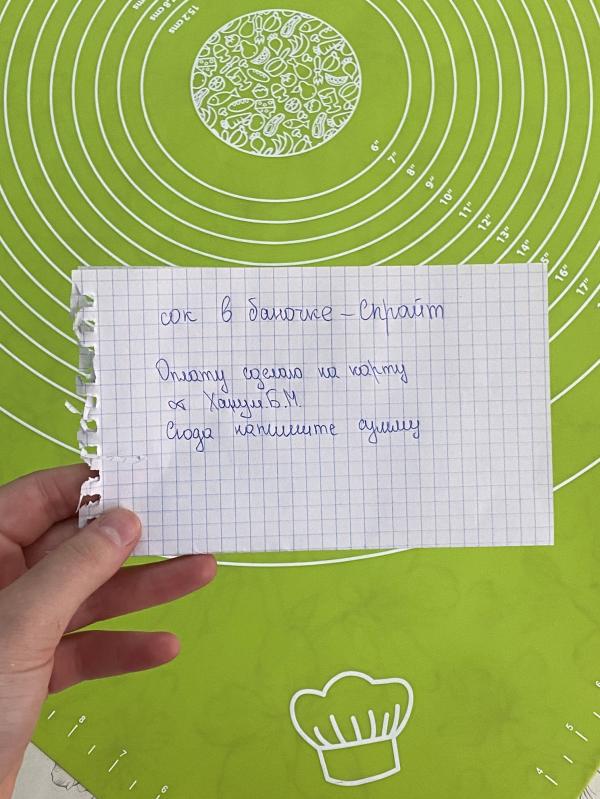 15.2 cms
6"
7"
8"
9"
10"
11"
12"
13"
14"
16"
17"
сок в баночке – Спрайт
Оплату сделаю на карту
от Ханум.Б.М.
Сюда напишите сумму
8
7
6
5
4